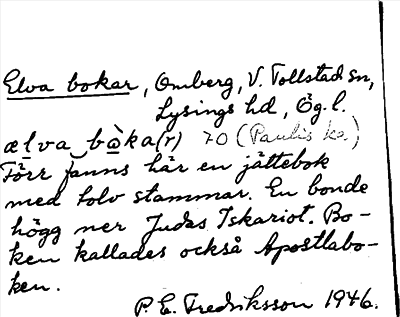 Elva bokar, Omberg, V. Tollstad sn,
Lysings hd, Ög. l.
ælva bòka(r) 70 (Paulis ka.)
Förr fanns här en jättebok
med tolv stammar. En bonde
högg ner Judas Iskariot. Bo-
ken kallades också Apostlabo-
ken.
P. E. Fredriksson 1946.